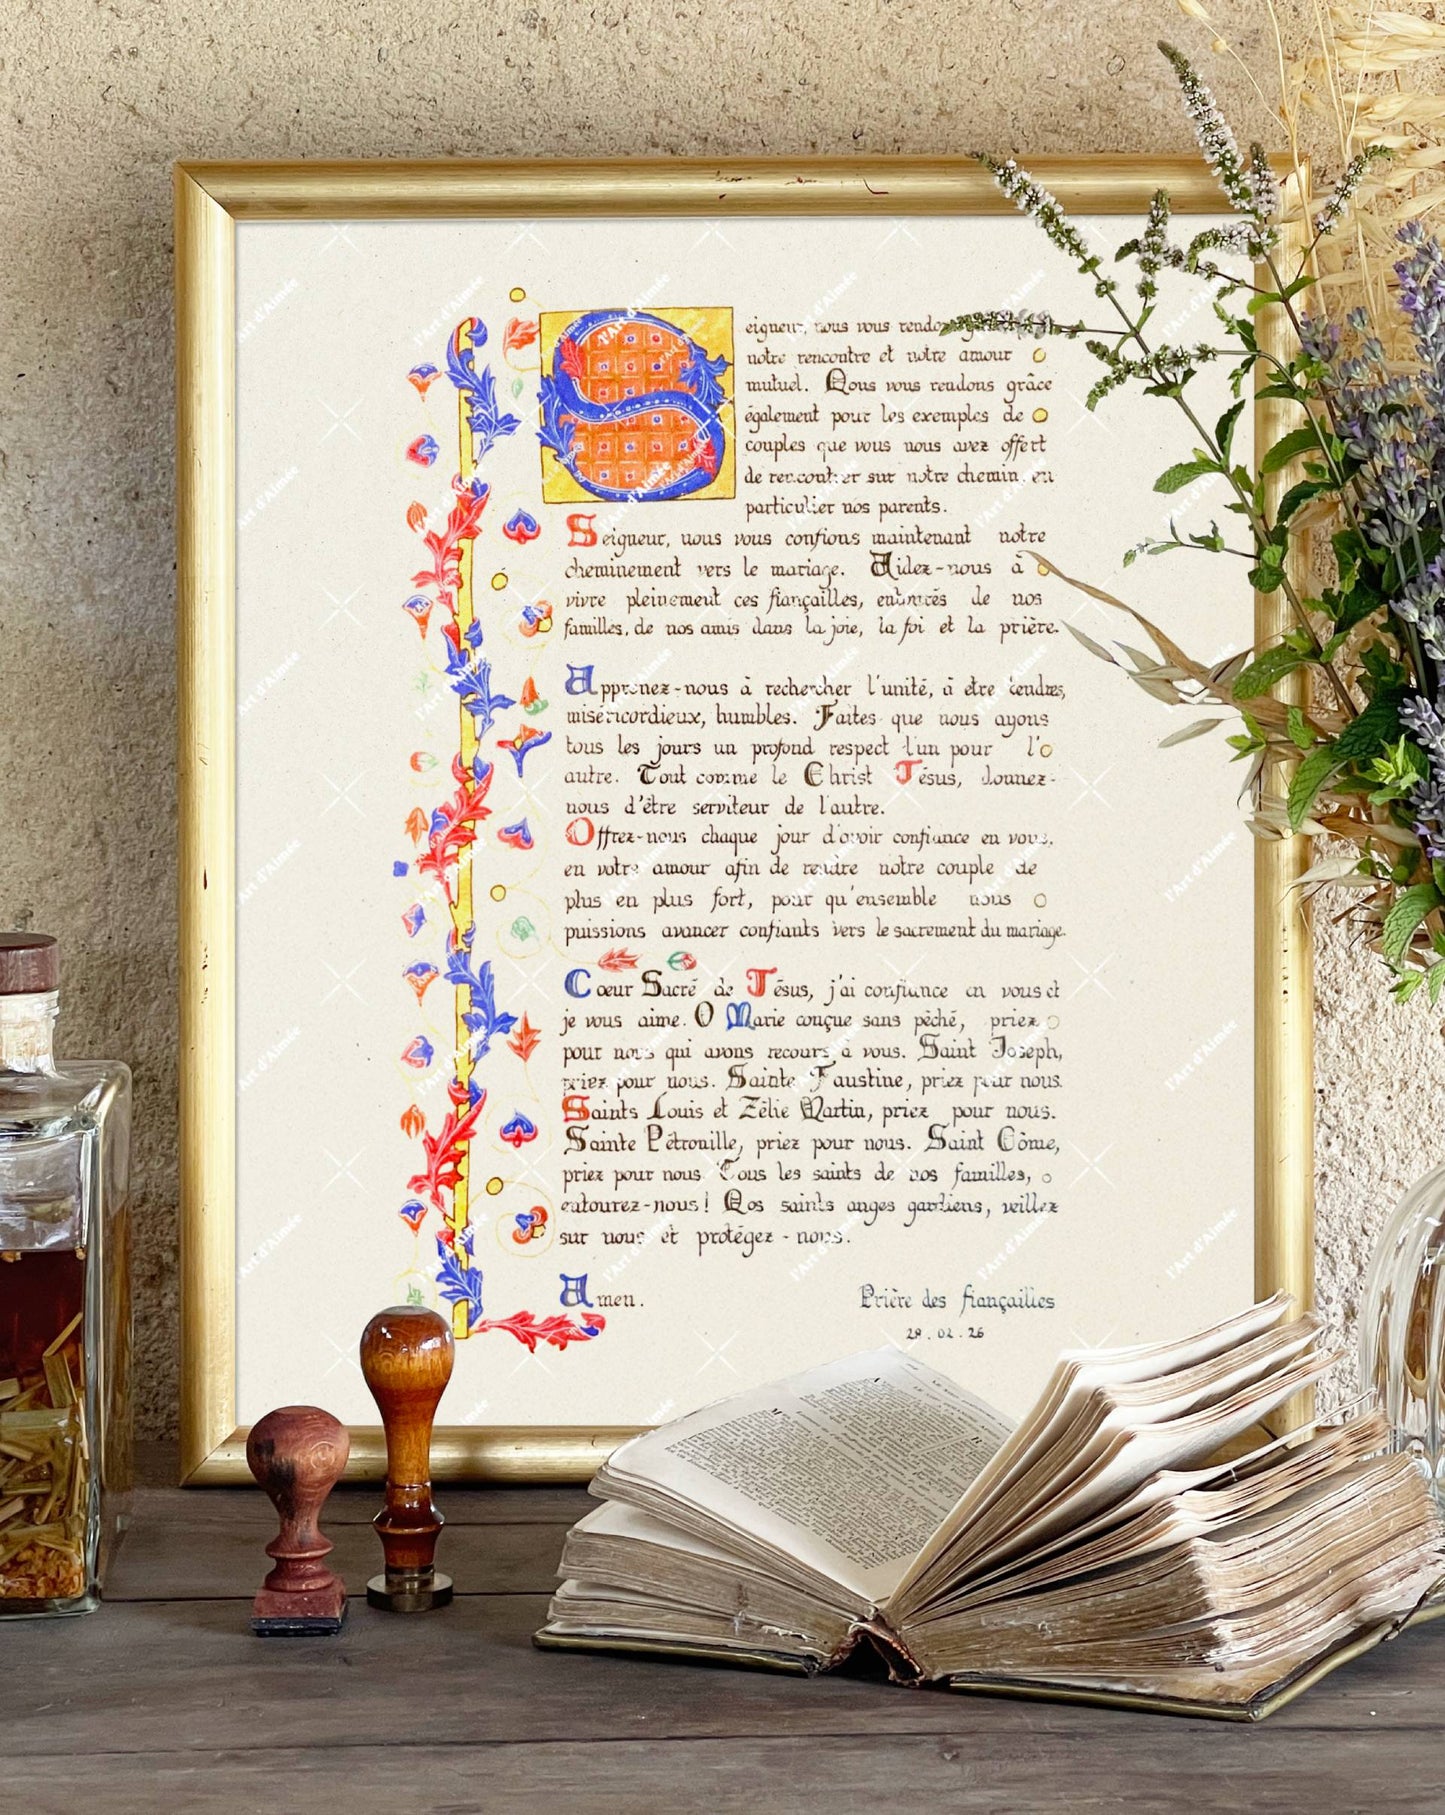 Seigneur, nous vous rendons
notre rencontre et notre amour
mutuel. Nous vous rendons grâce
également pour les exemples de
couples que vous nous avez offert
de rencontrer sur notre chemin, en
particulier nos parents.
Seigneur, nous vous confions maintenant notre
cheminement vers le mariage. Aidez-nous à
vivre pleinement ces fiançailles, entourés de nos
familles, de nos amis dans la joie, la foi et la prière.
Apprenez-nous à rechercher l'unité, à être tendres,
miséricordieux, humbles. Faites que nous ayons
tous les jours un profond respect l'un pour l'
autre. Tout comme le Christ Jésus, donnez-
nous d'être serviteur de l'autre.
Offrez-nous chaque jour d'avoir confiance en vous,
en votre amour afin de rendre notre couple de
plus en plus fort, pour qu'ensemble nous
puissions avancer confiants vers le sacrement du mariage.
Cœur Sacré de Jésus, j'ai confiance en vous et
je vous aime. O Marie conçue sans pêché, priez
pour nous qui avons recours à vous. Saint Joseph,
priez pour nous. Sainte Faustine, priez pour nous.
Saints Louis et Zélie Martin, priez pour nous.
Sainte Pétronille, priez pour nous. Saint Côme,
priez pour nous. Tous les saints de nos familles,
entourez-nous! Nos saints anges gardiens, veillez
sur nous et protégez-nous.
Amen.
Prière des fiançailles
28.02.26
l'Art d'Aimée